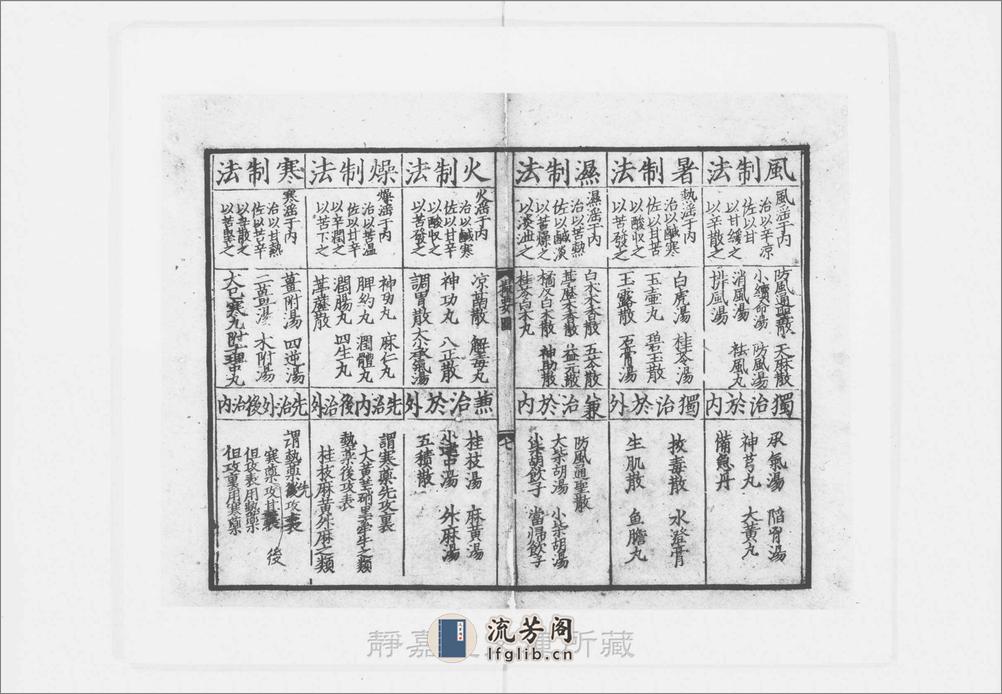 風制法
風滛于內
治以辛凉
佐以苦甘
以甘緩之
以辛散之
防風通聖散　天麻散
小續命湯　防風湯
消風湯　祛風丸
排風湯
獨治於內
承氣湯　陷胷湯
神芎丸　大黃丸
備急丹
暑制法
熱滛于內
治以鹹寒
佐以甘苦
以酸収之
以苦發之
白虎湯　桂苓湯
玉壷丸　碧玉散
玉露散　石膏湯
獨治於外
拔毒散　水澄膏
生肌散　魚膽丸
濕制法
濕滛于內
治以苦熱
佐以鹹淡
以苦燥之
以淡泄之
白术木香散　五苓散
葶藶木香散　益元散
橘皮白术散　神助散
桂苓白术丸
兼治於內
防風通聖散
大柴胡湯　小柴胡湯
小柴胡飲子　當帰飲子
七
火制法
火滛于內
治以鹹寒
佐以甘辛
以酸収之
以苦發之
凉膈散　解毒丸
神功丸　八正散
調胃散　大承氣湯
兼治於外
桂枝湯　麻黃湯
小建中湯　升麻湯
五積散
燥制法
燥滛于內
治以苦温
佐以甘辛
以辛潤之
以苦下之
神功丸　麻仁丸
脾約丸　潤體丸
潤腸丸　四生丸
葶藶散
先治內後治外
謂寒藥先攻裏
大黃芒硝黑牽牛之類
熱藥後攻表
桂枝麻黃升麻之類
寒制法
寒滛于內
治以甘熱
佐以苦辛
以辛散之
以苦堅之
薑附湯　四逆湯
二薑湯　术附湯
大巳寒丸　附子理中丸
先治外後治內
謂熱藥先攻表
寒藥攻其裏　後
但攻表用熱藥
但攻裏用寒藥
靜嘉　所藏
流芳阁
lfglib.cn